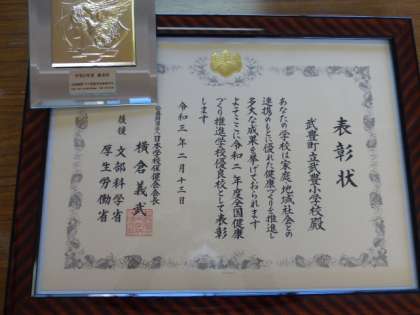 表彰状
武豊町立武豊小学校殿
あなたの学校は家庭、地域社会との
連携のもとに優れた健康づくりを推進し
多大な成果を挙げておられます
よってここに令和二年度全国健康
づくり推進学校優良校として表彰
します
令和三年二月十三日
日本学校保健会会長
横倉義武
後援 文部科学省
厚生労働省